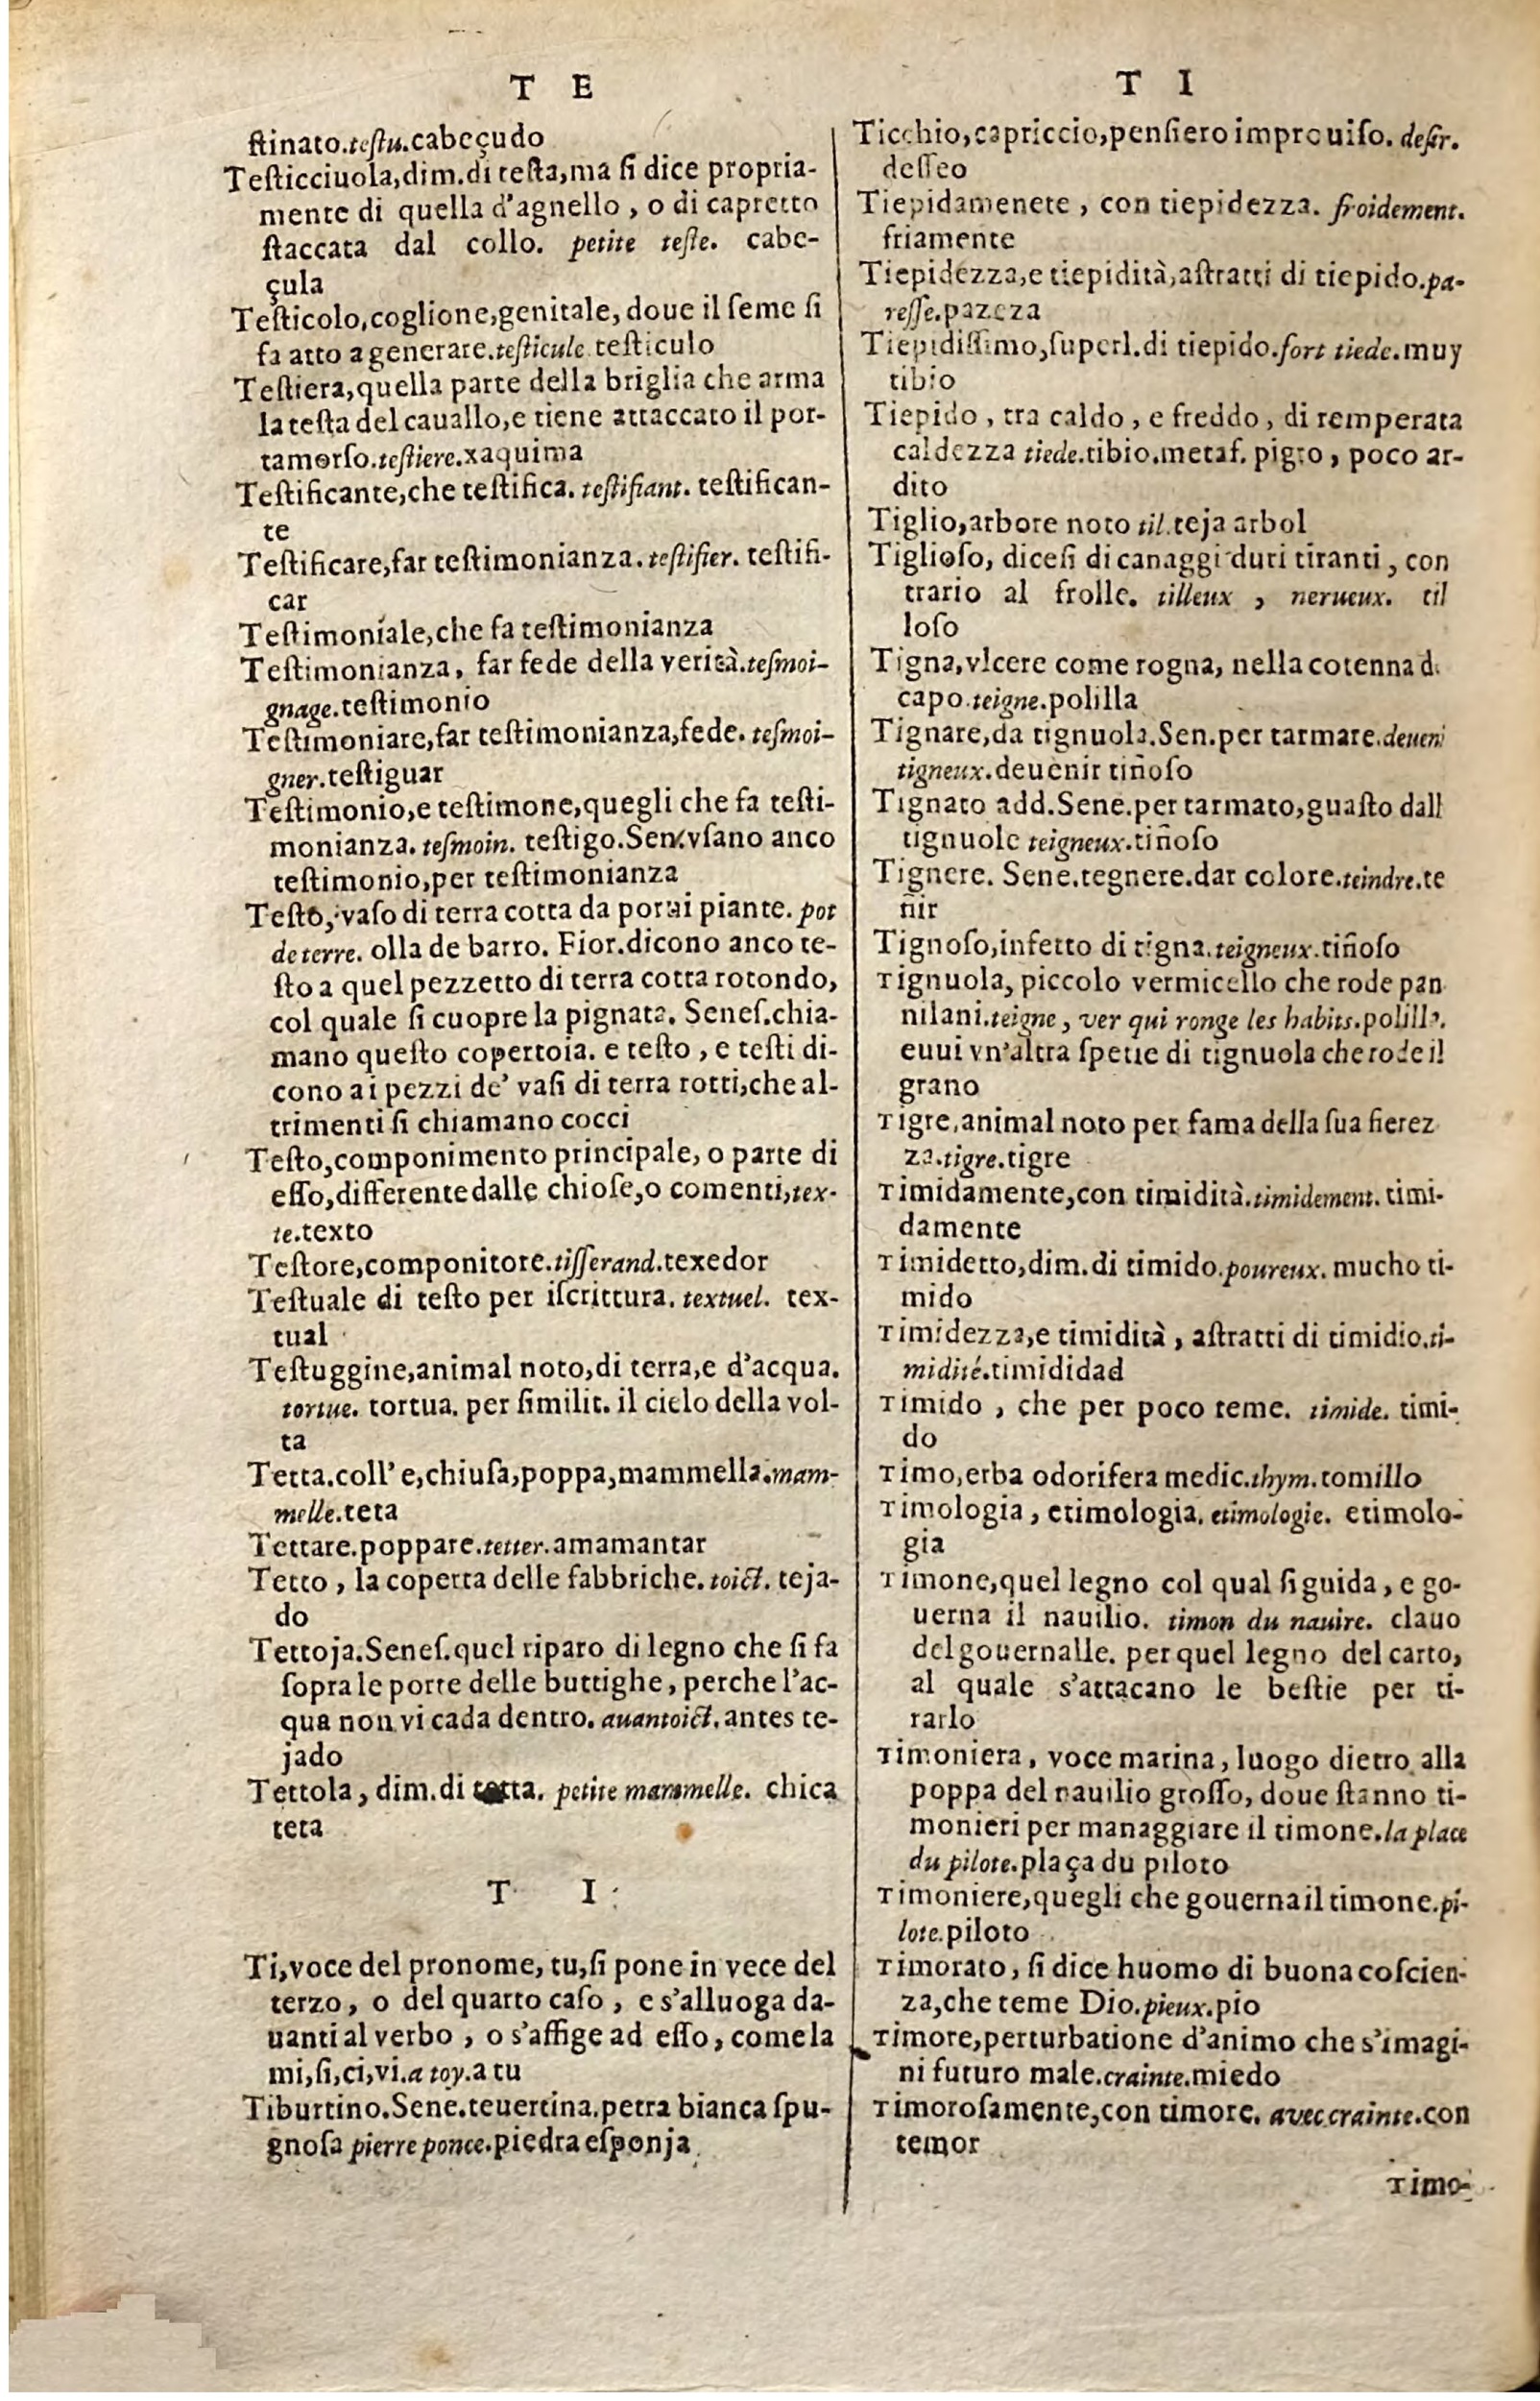 T E
ſtinato.teſtu.cabeçudo
Teſticciuola,dim.di teſta,ma ſi dice propria-
mente di quella d'agnello , o di capretto
ſtaccata dal collo. petite teſte. cabe-
çula
Teſticolo,coglione,genitale, doue il ſeme ſi
fa atto a generare.teſticule teſticulo
Teſtiera,quella parte della briglia che arma
la teſta del cauallo,e tiene attaccato il por-
tamorſo.teſtiere.xaquima
Teſtificante,che teſtifica. teſtifiant. teſtifican-
te
Teſtificare,far teſtimonianza. teſtifier. teſtifi-
car
Teſtimoniale,che fa teſtimonianza
Teſtimonianza, far fede della verità.teſmoi-
gnage.teſtimonio
Teſtimoniare,far teſtimonianza,fede. teſmoi-
gner.teſtiguar
Teſtimonio,e teſtimone,quegli che fa teſti-
monianza. teſmoin. teſtigo.Sen.vſano anco
teſtimonio,per teſtimonianza
Teſto, vaſo di terra cotta da porui piante. pot
de terre. olla de barro. Fior.dicono anco te-
ſto a quel pezzetto di terra cotta rotondo,
col quale ſi cuopre la pignata. Seneſ.chia-
mano queſto copertoia. e teſto , e teſti di-
cono ai pezzi de' vaſi di terra rotti,che al-
trimenti ſi chiamano cocci
Teſto,componimento principale, o parte di
eſſo,differente dalle chioſe,o comenti,tex-
te.texto
Teſtore,componitore.tiſſerand.texedor
Teſtuale di teſto per iſcrittura. textuel. tex-
tual
Teſtuggine,animal noto,di terra,e d'acqua.
tortue. tortua. per ſimilit. il cielo della vol-
ta
Tetta.coll' e,chiuſa,poppa,mammella.mam-
melle.teta
Tettare.poppare.tetter.amamantar
Tetto , la coperta delle fabbriche. toict. teja-
do
Tettoja.Seneſ.quel riparo di legno che ſi fa
ſopra le porte delle buttighe, perche l'ac-
qua non vi cada dentro. auantoict. antes te-
jado
Tettola, dim.di tetta. petite mammelle. chica
teta
T I
Ti,voce del pronome, tu,ſi pone in vece del
terzo, o del quarto caſo , e s'alluoga da-
uanti al verbo , o s'affige ad eſſo, come la
mi,ſi,ci,vi.a toy.a tu
Tiburtino.Sene.teuertina.petra bianca ſpu-
gnoſa pierre ponce.piedra eſponja
T I
Ticchio,capriccio,penſiero improuiſo. deſir.
deſſeo
Tiepidamenete , con tiepidezza. froidement.
friamente
Tiepidezza,e tiepidità,aſtratti di tiepido.pa-
reſſe.pazeza
Tiepidiſſimo,ſuperl.di tiepido.fort tiede.muy
tibio
Tiepido , tra caldo , e freddo , di remperata
caldezza tiede.tibio.metaf. pigro , poco ar-
dito
Tiglio,arbore noto til.teja arbol
Tiglioſo, diceſi di canaggi duri tiranti , con
trario al frolle. tilleux , nerueux. til
loſo
Tigna,vlcere come rogna, nella cotenna d.
capo.teigne.polilla
Tignare,da tignuola.Sen.per tarmare.deueni
tigneux.deuenir tiñoſo
Tignato add.Sene.per tarmato,guaſto dall
tignuole teigneux.tiñoſo
Tignere. Sene.tegnere.dar colore.teindre.te
ñir
Tignoſo,infetto di tigna.teigneux.tiñoſo
Tignuola, piccolo vermicello che rode pan
nilani.teigne , ver qui ronge les habits.polilla.
euui vn'altra ſpetie di tignuola che rode il
grano
Tigre,animal noto per fama della ſua fierez
za.tigre.tigre
Timidamente,con timidità.timidement. timi-
damente
Timidetto,dim.di timido.poureux. mucho ti-
mido
Timidezza,e timidità , aſtratti di timidio.ti-
midité.timididad
Timido , che per poco teme. timide. timi-
do
Timo,erba odorifera medic.thym.tomillo
Timologia, etimologia. etimologie. etimolo-
gia
Timone,quel legno col qual ſi guida , e go-
uerna il nauilio. timon du nauire. clauo
del gouernalle. per quel legno del carto,
al quale s'attacano le beſtie per ti-
rarlo
Timoniera, voce marina, luogo dietro alla
poppa del nauilio groſſo, doue ſtanno ti-
monieri per managgiare il timone.la place
du pilote.plaça du piloto
Timoniere,quegli che gouerna il timone.pi-
lote.piloto
Timorato, ſi dice huomo di buona coſcien-
za,che teme Dio.pieux.pio
Timore,perturbatione d'animo che s'imagi-
ni futuro male.crainte.miedo
Timoroſamente,con timore. avec crainte.con
temor
Timo-